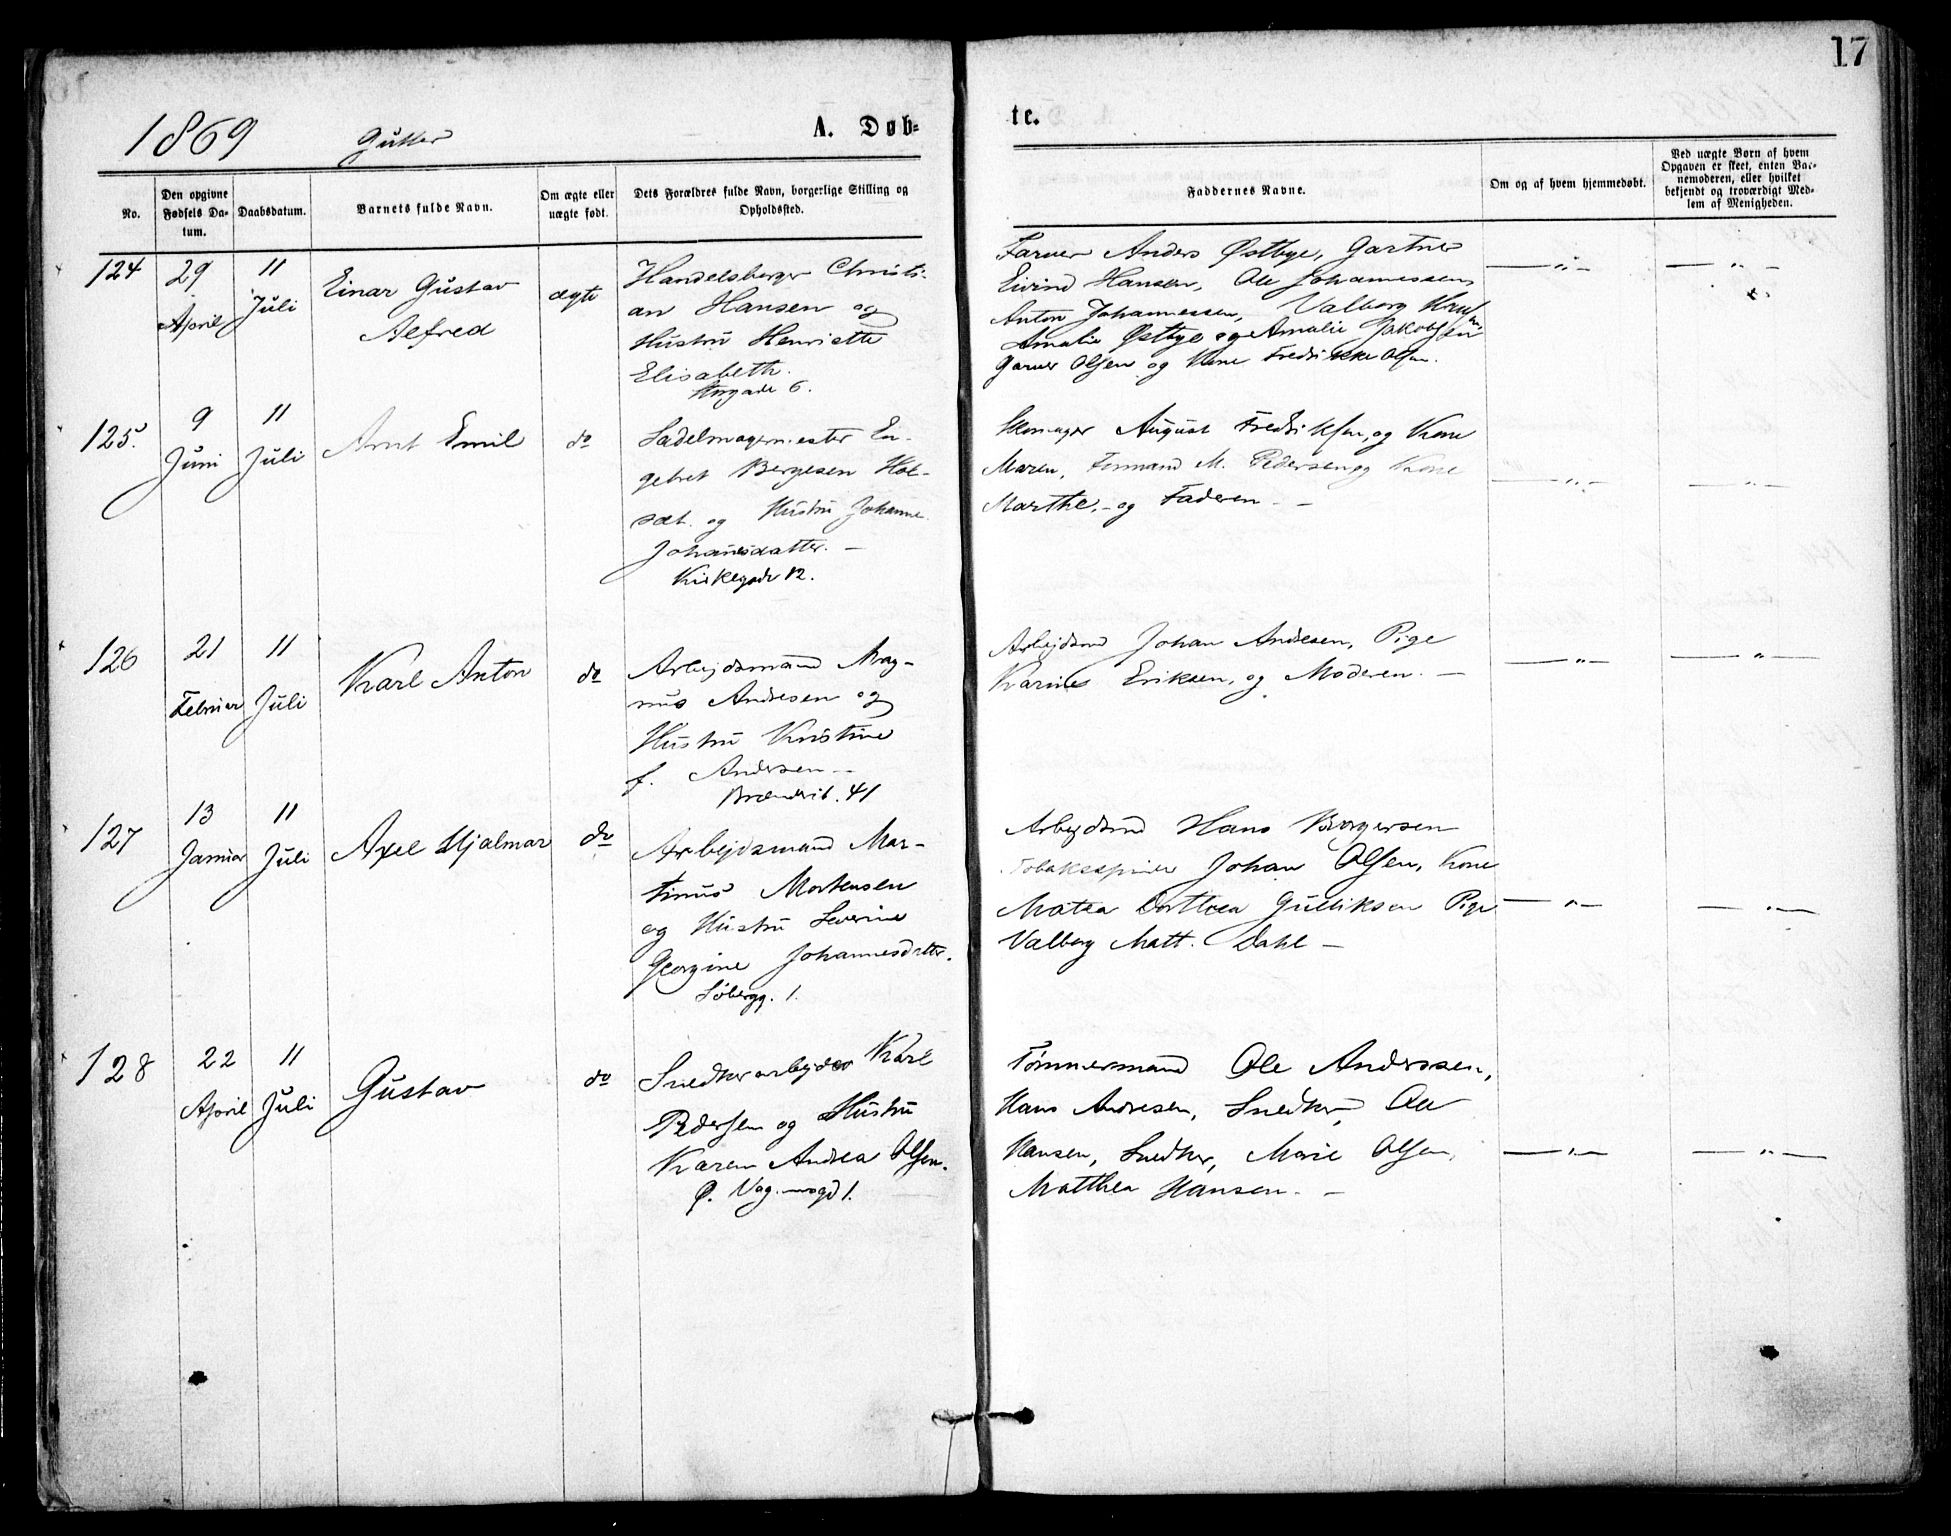 17
1869 Gutter A. Døb-
te.
No.
Den opgivne
Fødsels Da-
tum.
Daabsdatum.
Barnets fulde Navn.
Om ægte eller
uægte født.
Dets Forældres fulde Navn, borgerlige Stilling og
Opholdssted.
Faddernes Navne.
Om og af hvem hjemmedøbt.
Ved uægte Børn af hvem
Opgaven er skeet, enten Bar-
nemoderen, eller hvilket
bekjendt og troværdigt Med-
lem af Menigheden.
124
29
April
11
Juli
Einar Gustav
Alfred
ægte
Handelsborger Christi-
an Hansen og
Hustru Henriette
Elisabeth.
Storgade 6.
Farver Anders Østbye, Gartner
Eivind Hansen, Ole Johannessen,
Anton Johannessen, Valborg
Amalie Østbye og Amalie Jakobsen
Garver Olsen og Kone Fredrikke Olsen.
— „ —
— „ —
125.
9
Juni
11
Juli
Arnt Emil
do
Sadelmagermester En-
gebret Bergesen Hol-
sæt. og Hustru Johanne
Johanesdatter. —
Kirkegade 12.
Skomager August Fredriksen, og Kone
Maren, Formand M. Pedersen og Kone
Marthe, - og Faderen - —
— „ —
— „ —
126
21
Februar
11
Juli
Karl Anton
do
Arbejdsmand Mag-
nus Andresen og
Hustru Kristine
f. Andersen --
41
Arbejdsmd Johan Andresen, Pige
Karine Eriksen, og Moderen. —
— „ —
— „ —
127
13
Januar
11
Juli
Axel Hjalmar
do
Arbejdsmand Mar-
tinus Mortensen
og Hustru Severine
Georgine Johannesdatter.
Søbergg. 1.
Arbejdsmd Hans Borgersen
Tobaksspinder Johan Olsen, Kone
Matea Dorthea Gulliksen Pige
Valborg Matt. Dahl —
— „ —
— „ —
128
22
April
11
Juli
Gustav
do
Snedkerarbejder Karl
Pedersen og Hustru
Karen Andrea Olsen.
Ø. 1.
Tømmermand Ole Anderssen,
Hans Andresen, Snedker, Ole
Hansen, Snedker, Marie Olsen,
Matthea Hansen. —
— „ —
— „ —